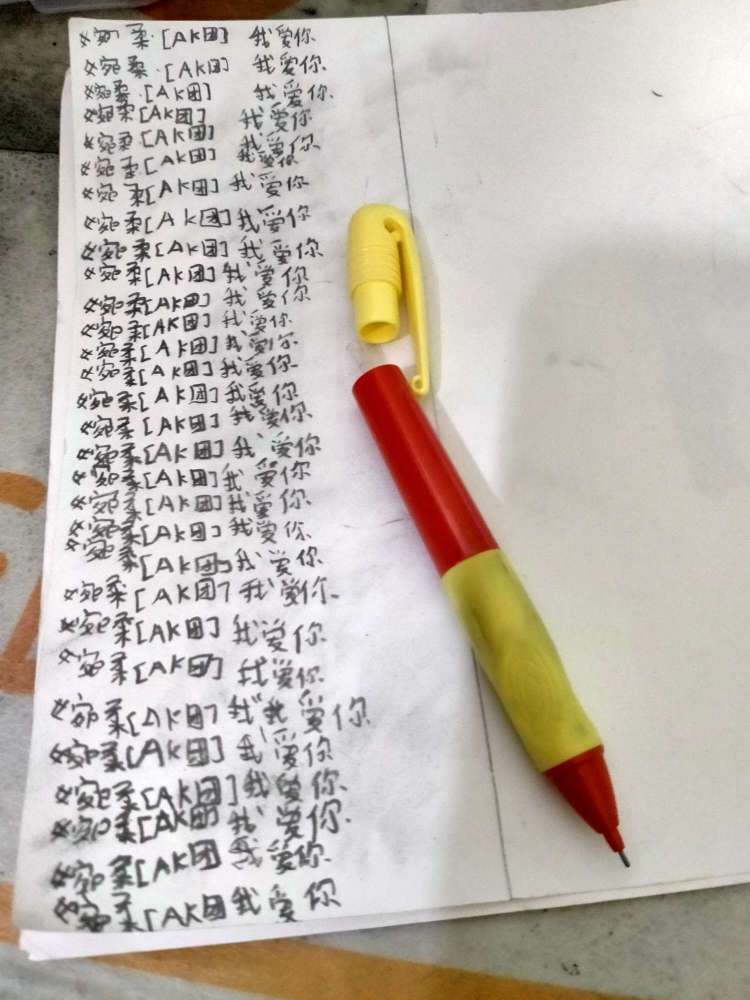 婉柔.[AK团] 我爱你
婉柔.[AK团] 我爱你
婉柔.[AK团] 我爱你
婉柔[AK团] 我爱你
婉柔[AK团] 我爱你
婉柔[AK团] 我爱你
婉柔[AK团] 我爱你
婉柔[AK团] 我爱你
婉柔[AK团] 我爱你
婉柔[AK团] 我爱你
婉柔[AK团] 我爱你
婉柔[AK团] 我爱你
婉柔[AK团] 我爱你
婉柔[AK团] 我爱你
婉柔[AK团] 我爱你
婉柔[AK团] 我爱你
婉柔[AK团] 我爱你
婉柔[AK团] 我爱你
婉柔[AK团] 我爱你
婉柔[AK团] 我爱你
婉柔[AK团] 我爱你
婉柔[AK团] 我爱你
婉柔[AK团] 我爱你
婉柔[AK团] 我爱你
婉柔[AK团] 我我爱你
婉柔[AK团] 我爱你
婉柔[AK团] 我爱你
婉柔[AK团] 我爱你
婉柔[AK团] 我爱你
婉柔[AK团] 我爱你